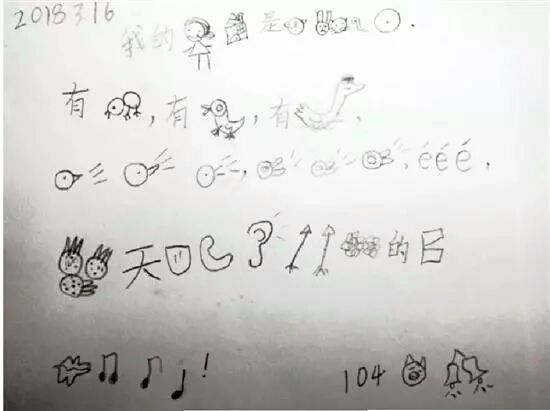 2018 3.16
我的 是 .
有 , 有 , 有 .
, , é é é .
天 的 日
!
104